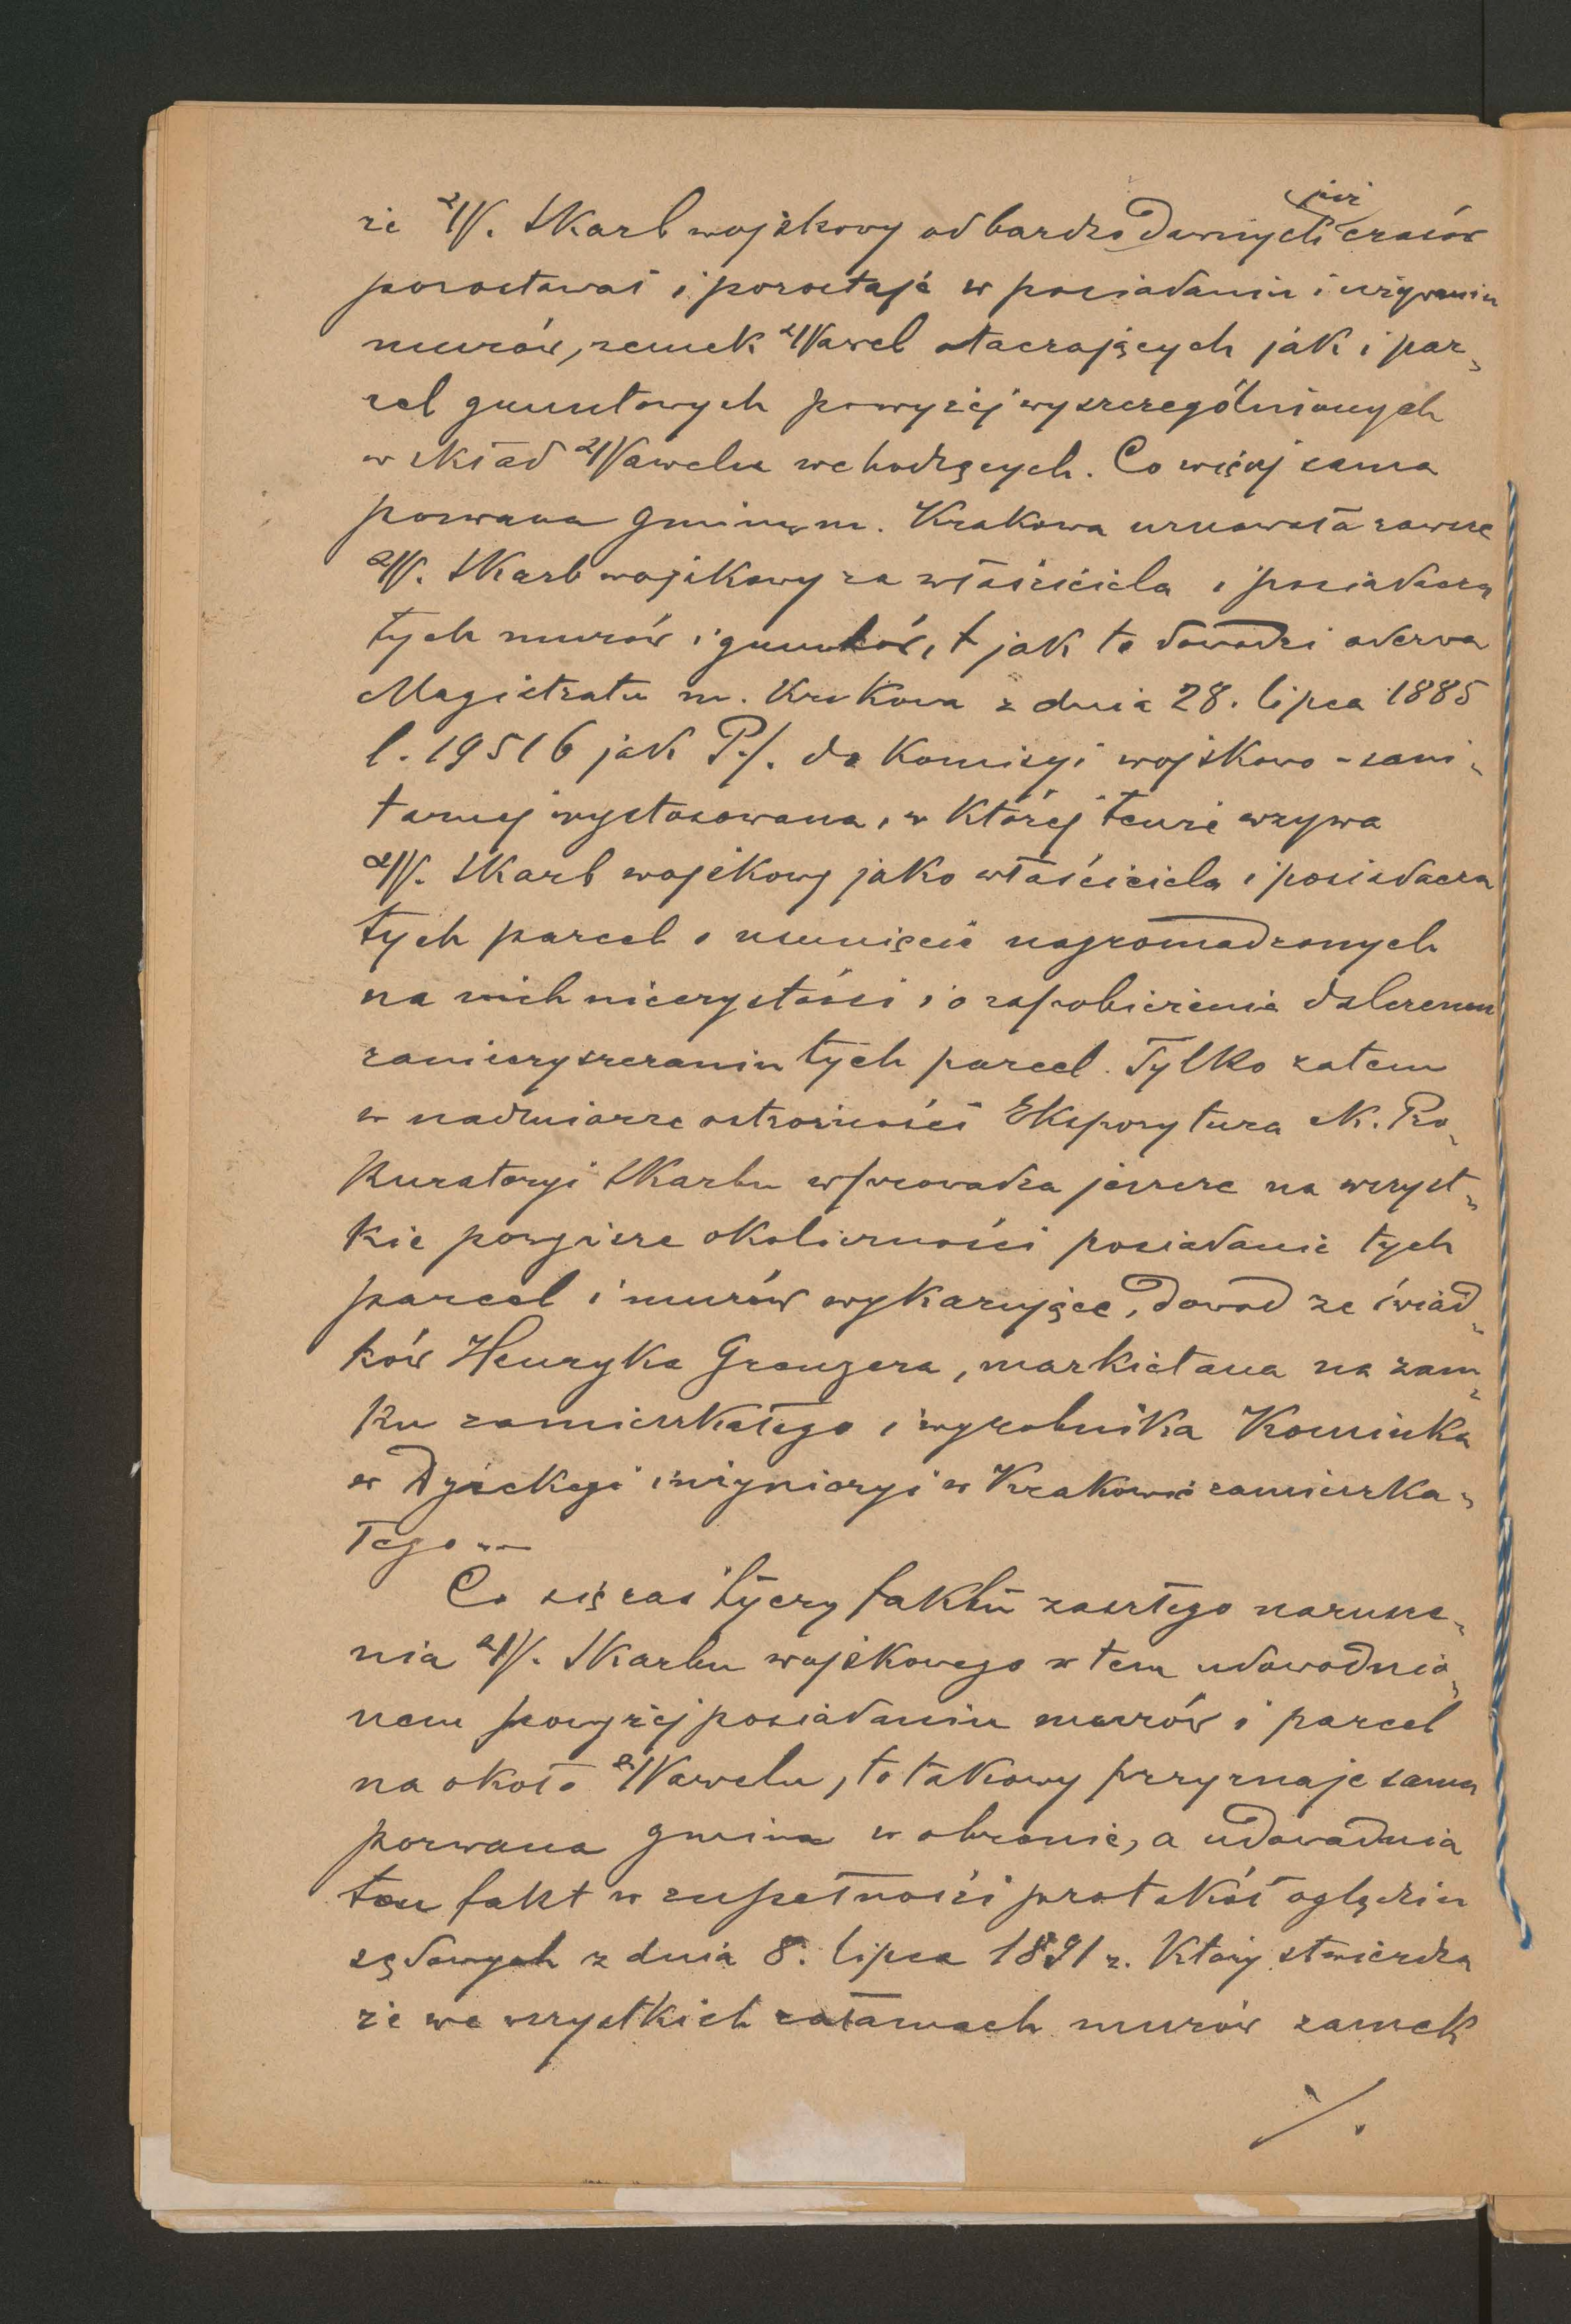 że W. Skarb wojskowy od bardzo dawnych już czasów
pozostawał i pozostaje w posiadaniu i używaniu
murów, zamek Wawel otaczających jak i par„
cel gruntowych powyżej wyszczególnionych
w skład Wawelu wchodzących. Co więcej sama
pozwana gmina m. Krakowa uznawała zawsze
W. Skarb wojskowy za właściciela i posiadacza
tych murów i gruntów, jak to dowodzi odezwa
Magistratu m. Krakowa z dnia 28. lipca 1885
l. 19516 jak P./. do Komisyi wojskowo-sani„
tarnej wystosowana, w której tenże wzywa
W. Skarb wojskowy jako właściciela i posiadacza
tych parcel o usunięcie nagromadzonych
na nich nieczystości i o zapobieżenie dalszemu
zanieczyszczaniu tych parcel. Tylko zatem
w nadmiarze ostrożności Ekspozytura c.k. Pro„
kuratoryi Skarbu wprowadza jeszcze na wszyst„
kie powyższe okoliczności posiadanie tych
parcel i murów wykazujące, dowód ze świad„
ków Henryka Grenzera, markietana na zam„
ku zamieszkałego i wyrobnika Kominka
w Dyrekcyi inżynieryi w Krakowie zamieszka„
łego.—
Co się zaś tyczy faktu zaszłego narusze„
nia W. Skarbu wojskowego w tem udowodnio„
nem powyżej posiadaniu murów i parcel
na około Wawelu, to takowy przyznaje sama
pozwana gmina w obronie, a udowadnia
ten fakt w zupełności protokół oględzin
sądowych z dnia 8. lipca 1891 r. który stwierdza
że we wszystkich załamach murów zamek
./.